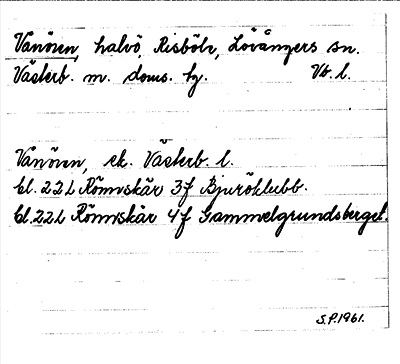 Vanören, halvö, Risböle, Lövångers sn.
Västerb. m. doms. bg. Vb. l.
Vanören, ek. Västerb. l.
bl. 22L Rönnskär 3f Bjuröklubb.
bl. 22L Rönnskär 4f Gammelgrundsberget.
S.P. 1961.